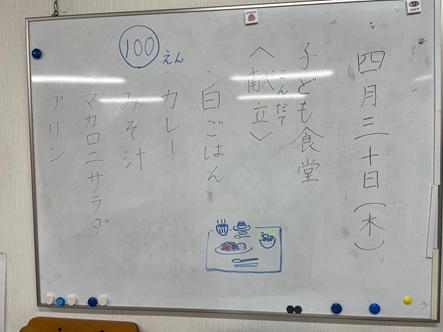 四月三十日(木)
子ども食堂
こんだて
〈献立〉
白ごはん
カレー
みそ汁
マカロニサラダ
プリン
100えん